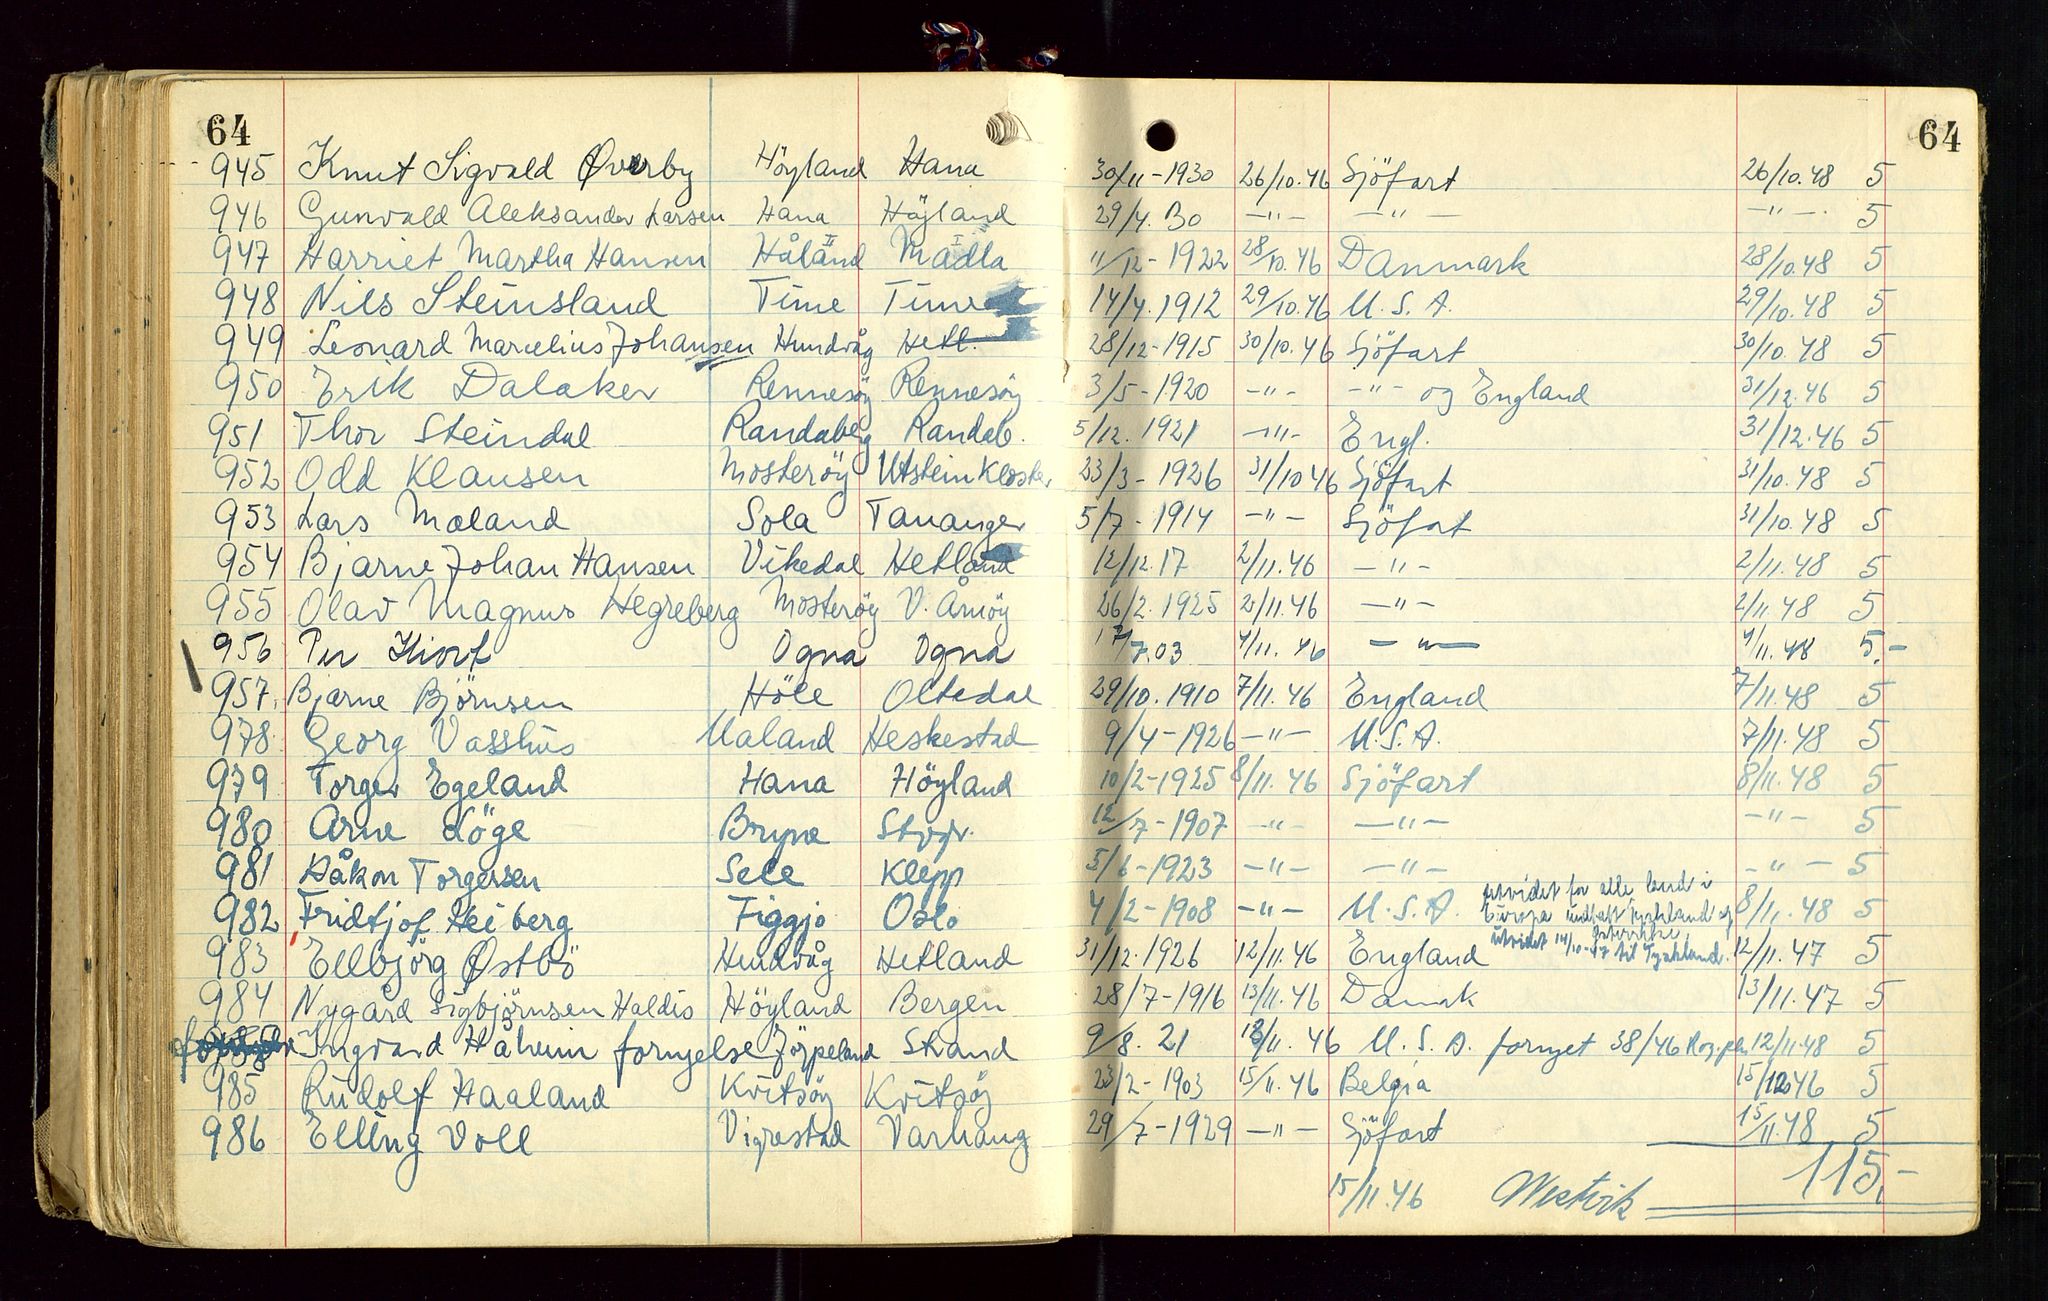 64 64
945 Knut Sigvald Øverby Höyland Hana 30/11-1930 26/10.46 Sjöfart 26/10.48 5
946 Gunvald Aleksander Larsen Hana Höyland 29/4.30 -"- -"- -"-. 5
947 Harriet Martha Hansen Håland II Madla I 11/12-1922 28/10.46 Danmark 28/10.48 5
948 Nils Steinsland Time Time 14/4.1912 29/10.46 U.S.A. 29/10.48 5
949 Leonard Marcelius Johansen Hundvåg Hetl. 28/12-1915 30/10.46 Sjöfart 30/10.48 5
950 Erik Dalaker Rennesöy Rennesöy 3/5-1920 -"- -"- og England 31/12.46 5
951 Thor Steindal Randaberg Randab. 5/12.1921 -"- Engl. 31/12.46 5
952 Odd Klausen Mosteröy Utstein Kloster 23/3-1926 31/10 46 Sjöfart 31/10.48 5
953 Lars Mæland Sola Tananger 5/7-1914 -"- Sjöfart 31/10.48 5
954 Bjarne Johan Hansen Vikedal Hetland 12/12.17 2/11.46 -"- 2/11.48 5
955 Olav Magnus Hegreberg Mosteröy V. Åmöy 26/2.1925 2/11.46 -"- 2/11.48 5
956 Per Ogna Ogna 17/7.03 4/11.46 -"- 4/11.48 5.-
957. Bjarne Björnsen Höle Oltedal 29/10.1910 7/11.46 England 7/11.48 5
978 Georg Vasshus Maland Heskestad 9/4-1926 -"- U.S.A. 7/11.48 5
979 Torger Egeland Hana Höyland 10/2-1925 8/11.46 Sjöfart 8/11.48 5
980 Arne Löge Bryne Stvgr. 12/7-1907 -"- -"- -"- 5
981 Håkon Torgersen Sele Klepp 5/6-1923 -"- -"- -"- 5
utvidet for alle land i
982 Fridtjof Heiberg Figgjo Oslo 4/2-1908 -"- U.S.A. Europa Tyskland og 8/11.48 5
983 Ellbjörg Östbö Hundvåg Hetland 31/12.1926 12/11.46 England utvidet 14/10-47 til Tyskland. 12/11.47 5
984 Nygård Sigbjörnsen Haldis Höyland Bergen 28/7-1916 13/11.46 Dansk 13/11.47 5
Ingvard Håheim fornyelse Jörpeland Strand 9/8.21 12/11.46 U.S.A. fornyet 38/46 12/11.48 5
985 Rudolf Haaland Kvitsöy Kvitsöy 23/2-1903 15/11.46 Belgia 15/12.46 5
986 Elling Voll Vigrestad Varhaug 29/7-1929 -"- Sjöfart 15/11.48 5
115.-
15/11.46 Westvik